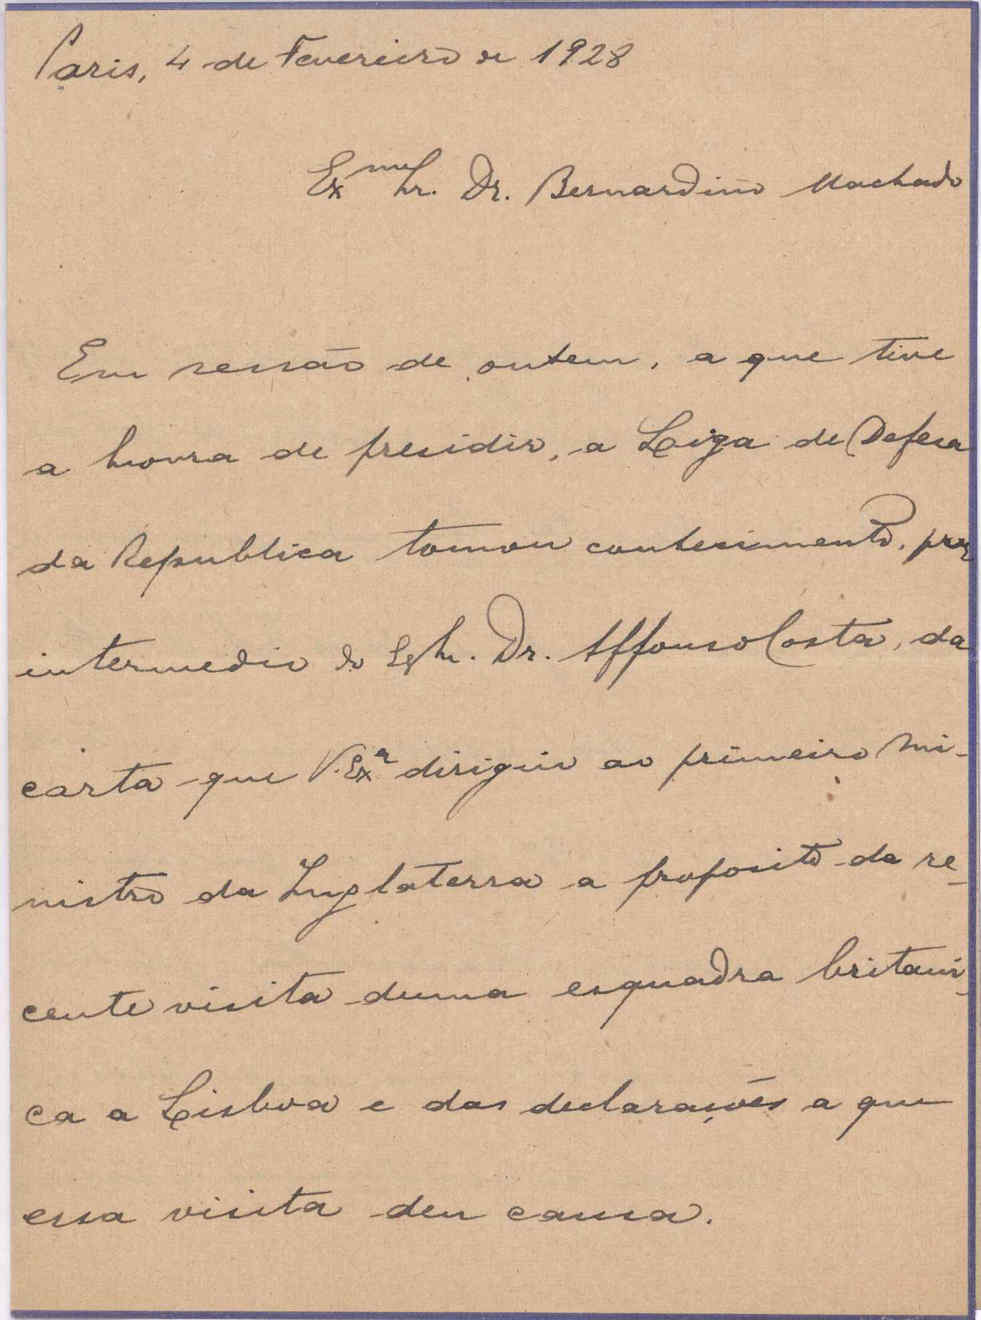 Paris, 4 de Fevereiro de 1928
Exmo Sr. Dr. Bernardino Machado
Em sessão de ontem, a que tive
a honra de presidir, a Liga de Defesa
da Republica tomou conhecimento, por
intermedio do Sr. Dr. Affonso Costa, da
carta que V. Exa dirigiu ao primeiro Mi-
nistro da Inglaterra a proposito da re-
cente visita duma esquadra britani-
ca a Lisboa e das declarações a que
essa visita deu causa.